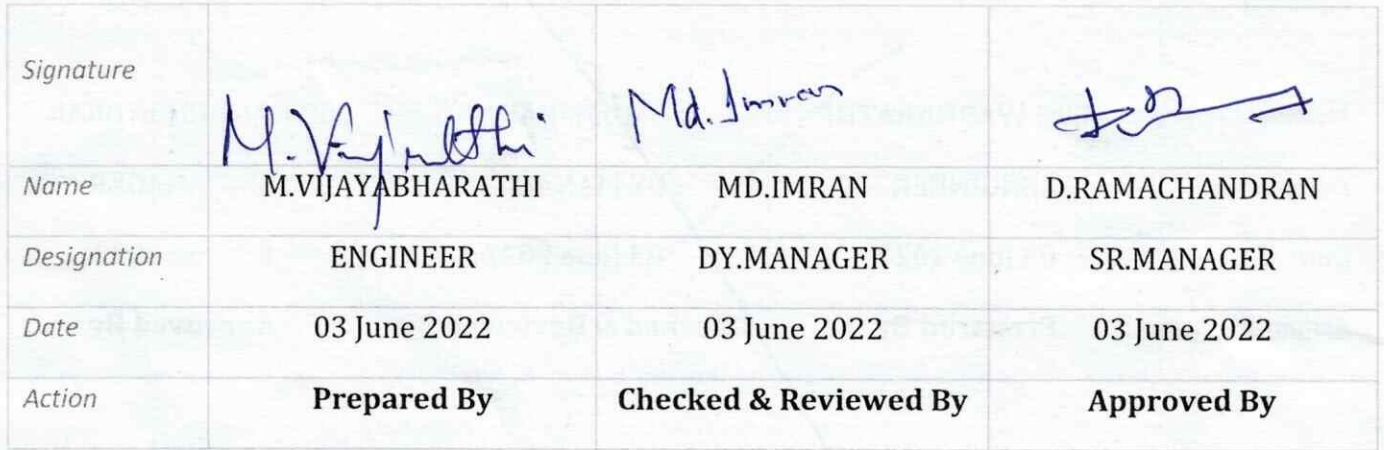 Signature M.Vijayabharathi Md. Imran
Name M.VIJAYABHARATHI MD.IMRAN D.RAMACHANDRAN
Designation ENGINEER DY.MANAGER SR.MANAGER
Date 03 June 2022 03 June 2022 03 June 2022
Action Prepared By Checked & Reviewed By Approved By